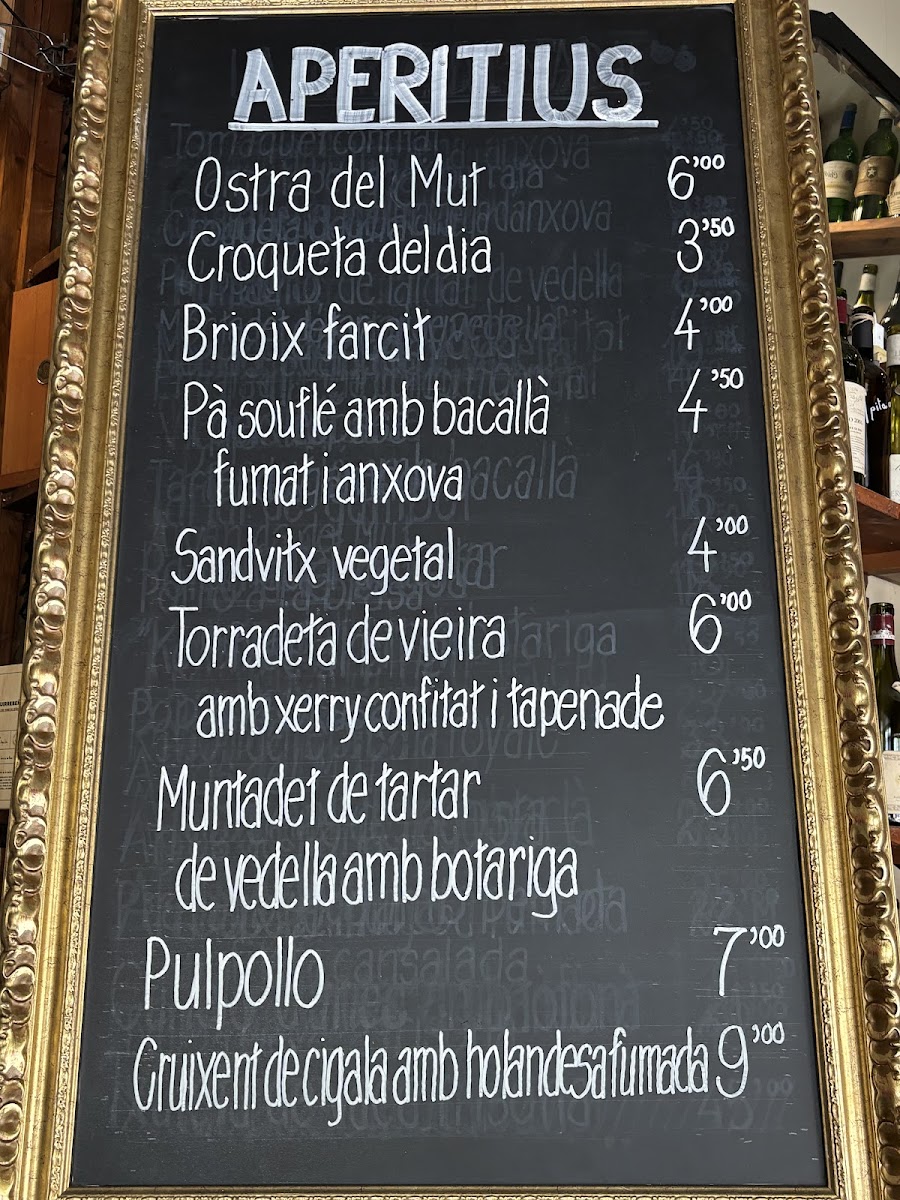 APERITIUS
Ostra del Mut 6'00
Croqueta del dia 3'50
Brioix farcit 4'00
Pà souflé amb bacallà 4'50
fumat i anxova
Sandvitx vegetal 4'00
Torradeta de vieira 6'00
amb xerry confitat i tapenade
Muntadet de tartar 6'50
de vedella amb botariga
Pulpollo 7'00
Cruixent de cigala amb holandesa fumada 9'00